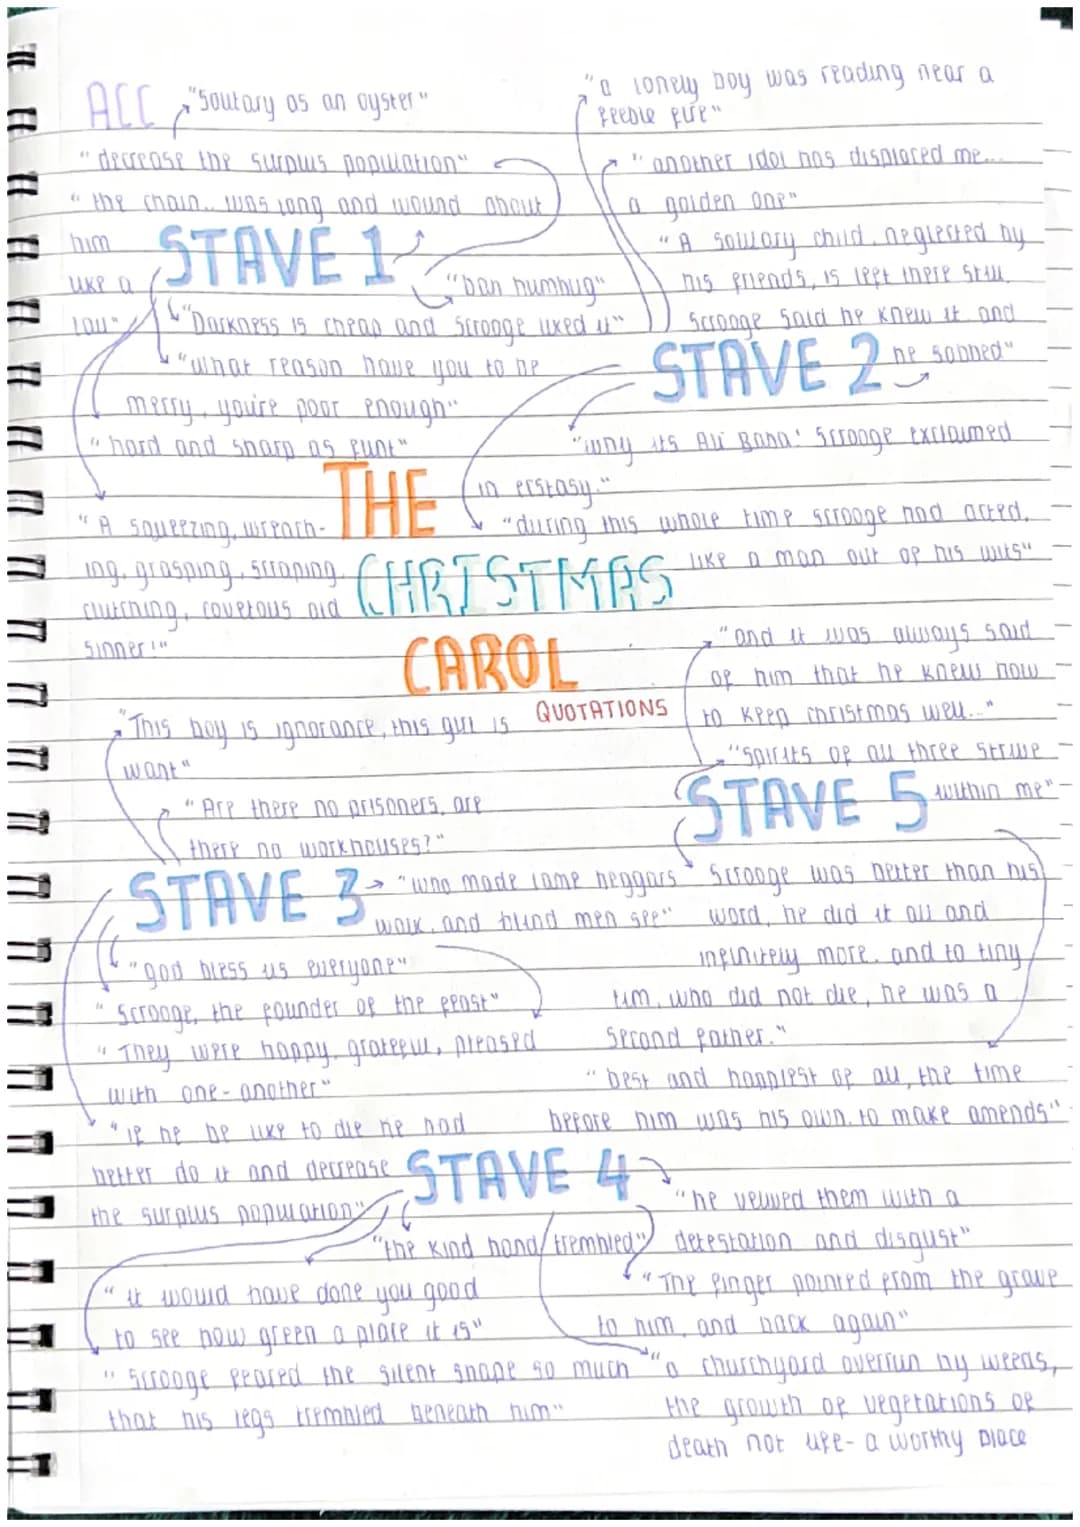 ACC
"Soutary as an oyster"
"decrease the surplus population"
"the chain.. was long and wound about
him
like a
tail"
STAVE 1
"bah humbug"
"Darkness is cheap and Scrooge liked it"
"what reason have you to be
merry, you're poor enough"
"hard and sharp as flint"
"A squeezing, wrench-
ing, grasping, scraping,
clutching, covetous old
sinner!"
"a lonely boy was reading near a
feeble fire"
"another idol has displaced me...
a golden one"
"A solitary child, neglected by
his friends, is left there still.
Scrooge said he knew it and
he sobbed"
STAVE 2
"why its Ali Baba! Scrooge exclaimed
in ecstasy."
"during this whole time scrooge had acted,
like a man out of his wits"
THE
CHRISTMAS
CAROL
QUOTATIONS
"This boy is ignorance, this girl is
want"
"Are there no prisoners, are
there no workhouses?"
STAVE 3
"who made lame beggars
walk, and blind men see"
"god bless us everyone"
"Scrooge, the founder of the feast"
"They were happy, grateful, pleased
with one-another"
"if he be like to die he had
better do it and decrease
the surplus population"
"and it was always said
of him that he knew how
to keep christmas well..."
"spirits of all three strive
within me"
STAVE 5
Scrooge was better than his
word, he did it all and
infinitely more, and to tiny
tim, who did not die, he was a
second father."
"best and happiest of all, the time
before him was his own, to make amends"
STAVE 4
"he veiwed them with a
detestation and disgust"
"the kind hand trembled"
"The finger pointed from the grave
to him, and back again"
"it would have done you good
to see how green a place it is"
"Scrooge feared the silent shape so much
that his legs trembled beneath him"
"a churchyard overrun by weeds,
the growth of vegetations of
death not life- a worthy place